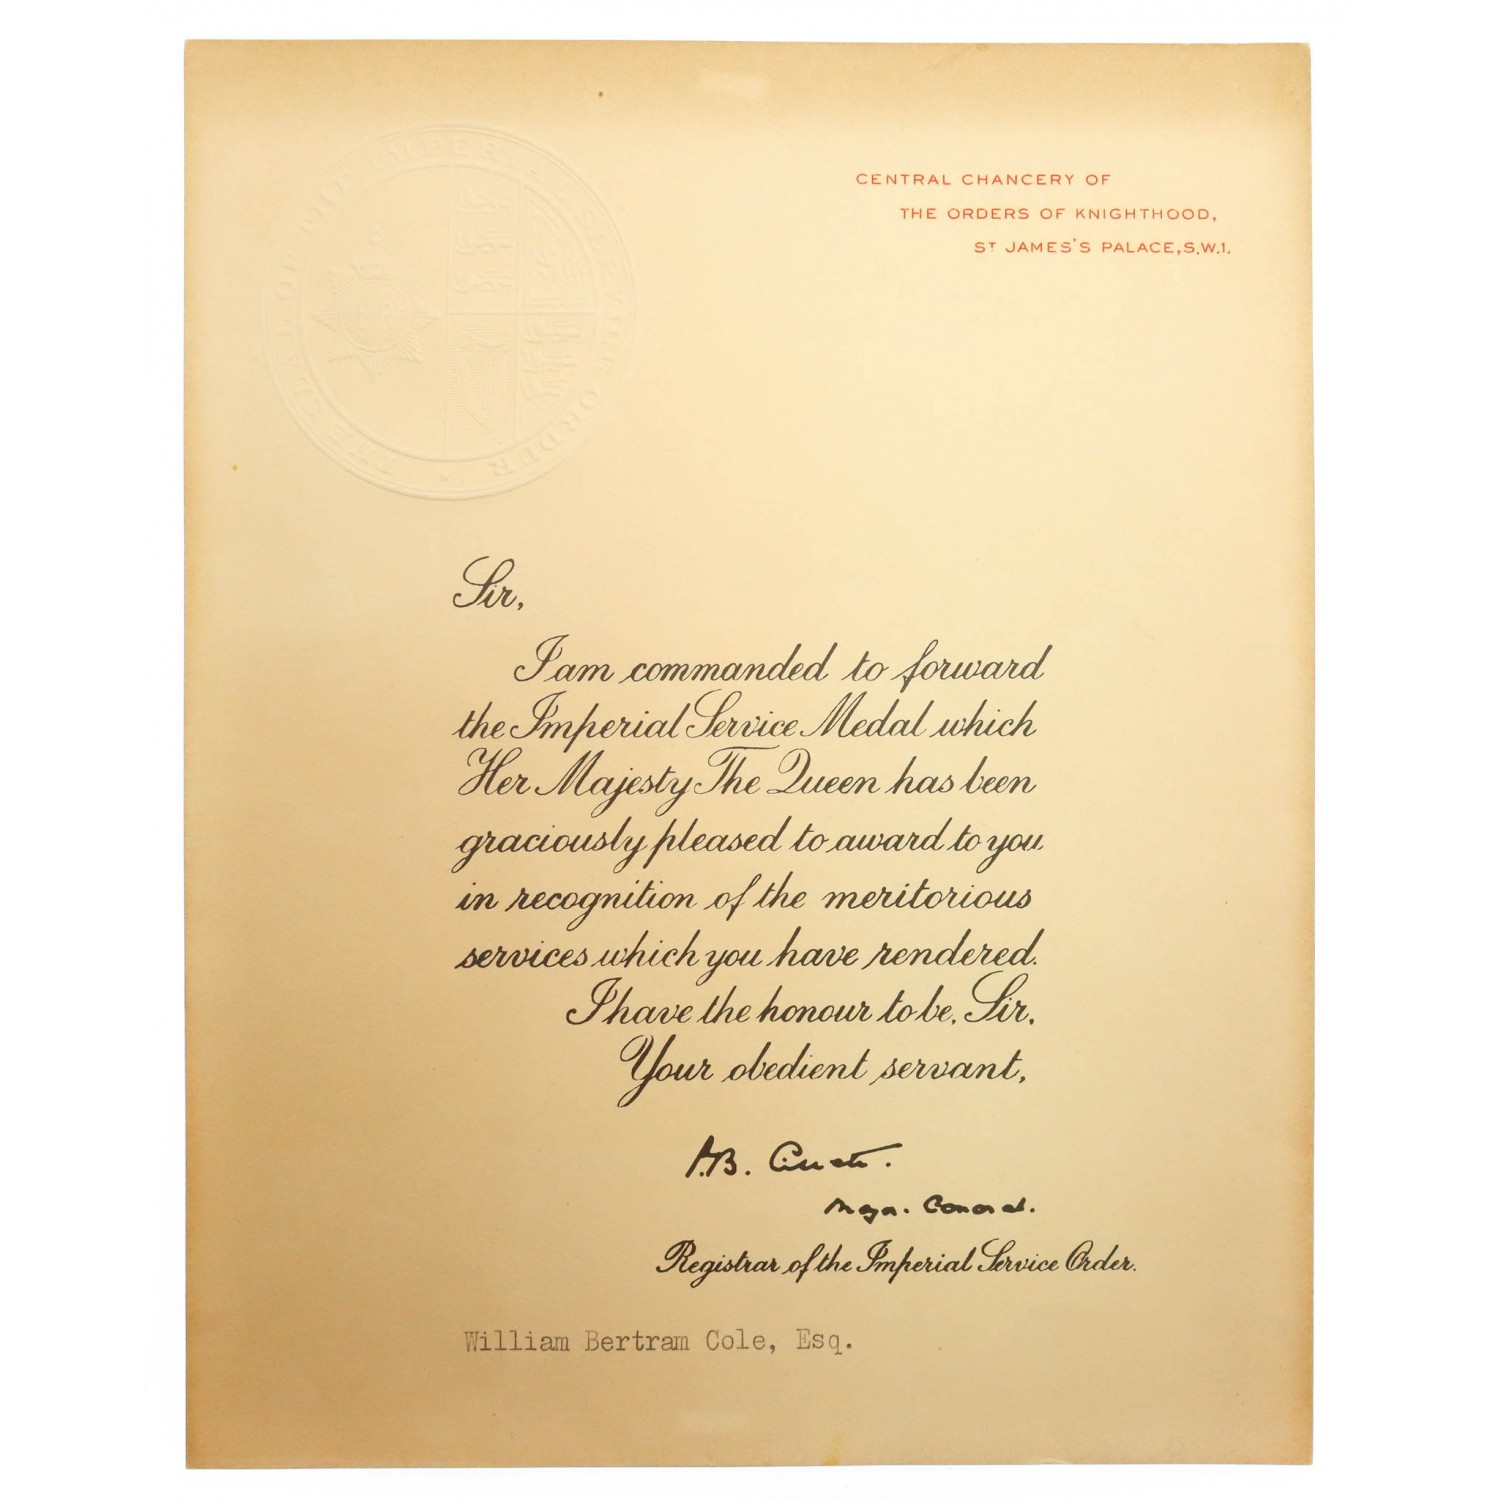 THE SEAL OF THE IMPERIAL SERVICE ORDER
CENTRAL CHANCERY OF
THE ORDERS OF KNIGHTHOOD,
ST JAMES'S PALACE, S.W.1.
Sir,
I am commanded to forward
the Imperial Service Medal which
Her Majesty The Queen has been
graciously pleased to award to you
in recognition of the meritorious
services which you have rendered.
I have the honour to be, Sir,
Your obedient servant,
Registrar of the Imperial Service Order.
William Bertram Cole, Esq.